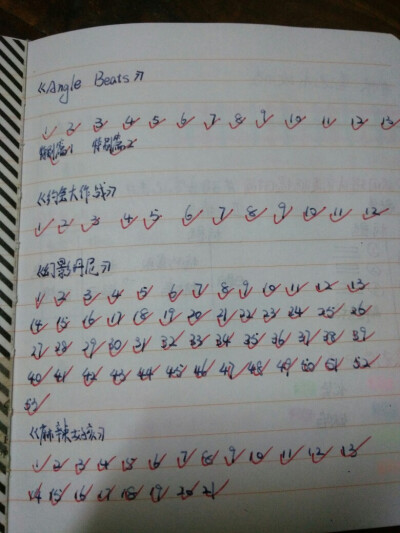 《Angle Beats》
1 2 3 4 5 6 7 8 9 10 11 12 13
特别篇1 特别篇2
《约会大作战》
1 2 3 4 5 6 7 8 9 10 11 12
《幻影丹尼》
1 2 3 4 5 6 7 8 9 10 11 12 13
14 15 16 17 18 19 20 21 22 23 24 25 26
27 28 29 30 31 32 33 34 35 36 37 38 39
40 41 42 43 44 45 46 47 48 49 50 51 52
53
《麻辣女孩》
1 2 3 4 5 6 7 8 9 10 11 12 13
14 15 16 17 18 19 20 21